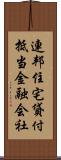 連邦住宅貸付
抵当金融会社